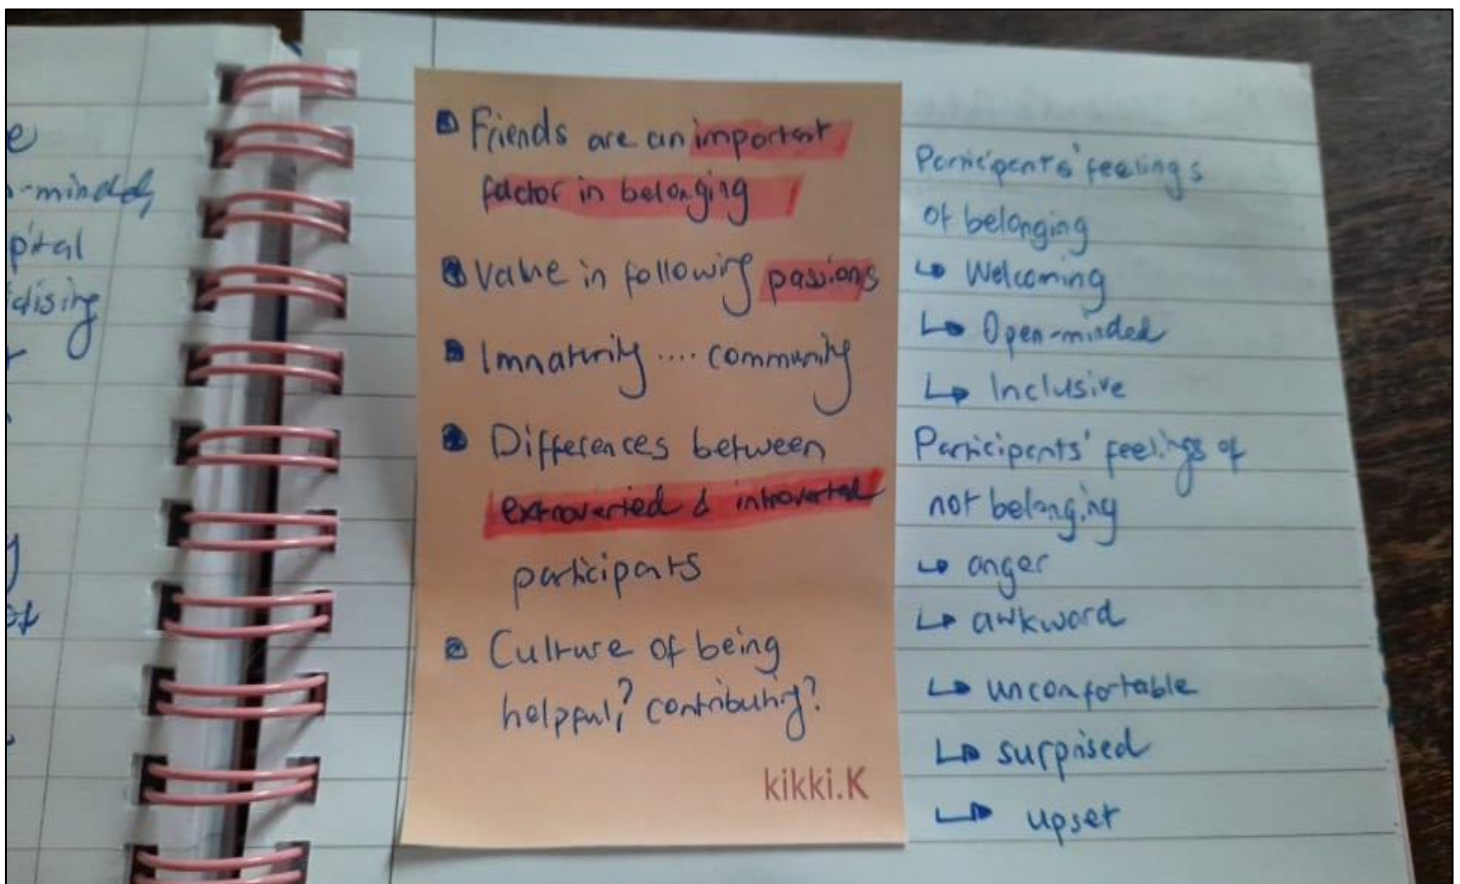 e
-minded,
pital
dising
of
Friends are an important
factor in belonging
Value in following passions
Immaturity .... community
Differences between
extroverted & introverted
participants
Culture of being
helpful? contributing?
kikki.K
Participants' feelings
of belonging
↳ Welcoming
↳ Open-minded
↳ Inclusive
Participants' feelings of
not belonging
↳ anger
↳ awkward
↳ uncomfortable
↳ surprised
↳ upset